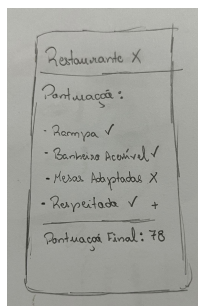 Restaurante X
Pontuação:
- Rampa ✓
- Banheiro Acessível ✓
- Mesas Adaptadas X
- Respeitada ✓ +
Pontuação Final: 78